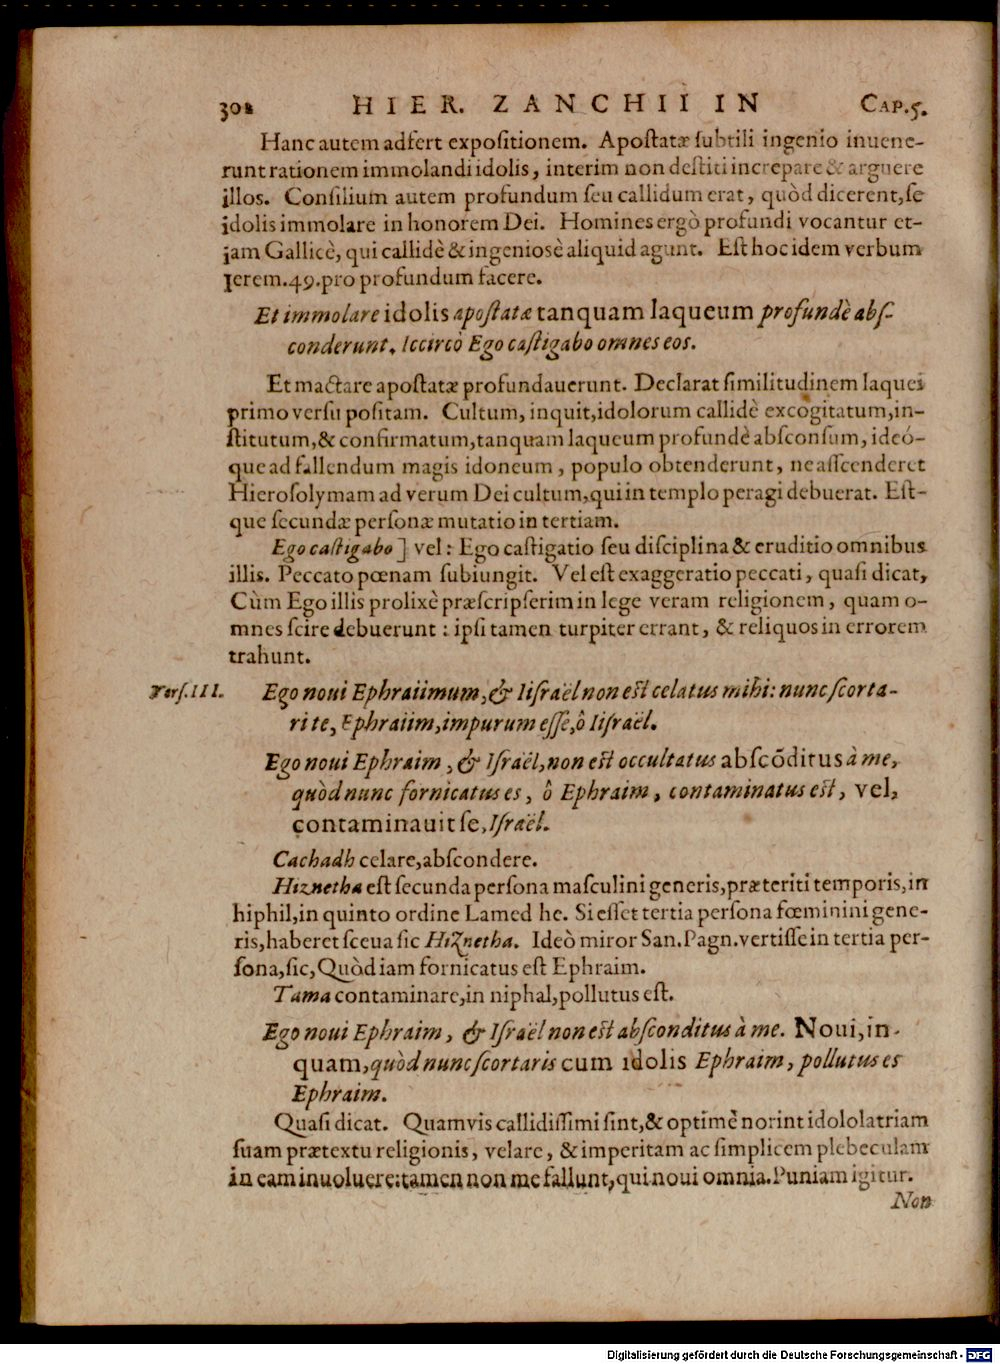 302 HIER. ZANCHII IN CAP.5.
Hanc autem adfert expositionem. Apostatæ subtili ingenio inuene-
runt rationem immolandi idolis, interim non destiti increpare & arguere
illos. Consilium autem profundum seu callidum erat, quòd dicerent, se
idolis immolare in honorem Dei. Homines ergò profundi vocantur et-
jam Gallicè, qui callidè & ingeniosè aliquid agunt. Est hoc idem verbum
Jerem.49. pro profundum facere.
Et immolare idolis apostatæ tanquam laqueum profundè abs-
conderunt. Iccircò Ego castigabo omnes eos.
Et mactare apostatæ profundauerunt. Declarat similitudinem laquei
primo versu positam. Cultum, inquit, idolorum callidè excogitatum, in-
stitutum, & confirmatum, tanquam laqueum profundè absconsum, ideó-
que ad fallendum magis idoneum, populo obtenderunt, ne asscenderet
Hierosolymam ad verum Dei cultum, qui in templo peragi debuerat. Est-
que secundæ personæ mutatio in tertiam.
Ego castigabo] vel: Ego castigatio seu disciplina & eruditio omnibus
illis. Peccato pœnam subiungit. Vel est exaggeratio peccati, quasi dicat,
Cùm Ego illis prolixè præscripserim in lege veram religionem, quam o-
mnes scire debuerunt: ipsi tamen turpiter errant, & reliquos in errorem
trahunt.
Vers.III. Ego noui Ephraiimum, & Iisraël non est celatus mihi: nunc scorta-
ri te, Ephraiim, impurum esse, ô Iisraël.
Ego noui Ephraim, & Israël, non est occultatus abscōditus à me,
quòd nunc fornicatus es, ô Ephraim, contaminatus est, vel,
contaminauit se, Israël.
Cachadh celare, abscondere.
Hiznetha est secunda persona masculini generis, præteriti temporis, in
hiphil, in quinto ordine Lamed he. Si esset tertia persona fœminini gene-
ris, haberet sceua sic Hiznetha. Ideò miror San. Pagn. vertisse in tertia per-
sona, sic, Quòd iam fornicatus est Ephraim.
Tama contaminare, in niphal, pollutus est.
Ego noui Ephraim, & Israël non est absconditus à me. Noui, in-
quam, quòd nunc scortaris cum idolis Ephraim, pollutus es
Ephraim.
Quasi dicat. Quamvis callidissimi sint, & optimè norint idololatriam
suam prætextu religionis, velare, & imperitam ac simplicem plebeculam
in eam inuoluere: tamen non me fallunt, qui noui omnia. Puniam igitur.
Non
Digitalisierung gefördert durch die Deutsche Forschungsgemeinschaft - DFG